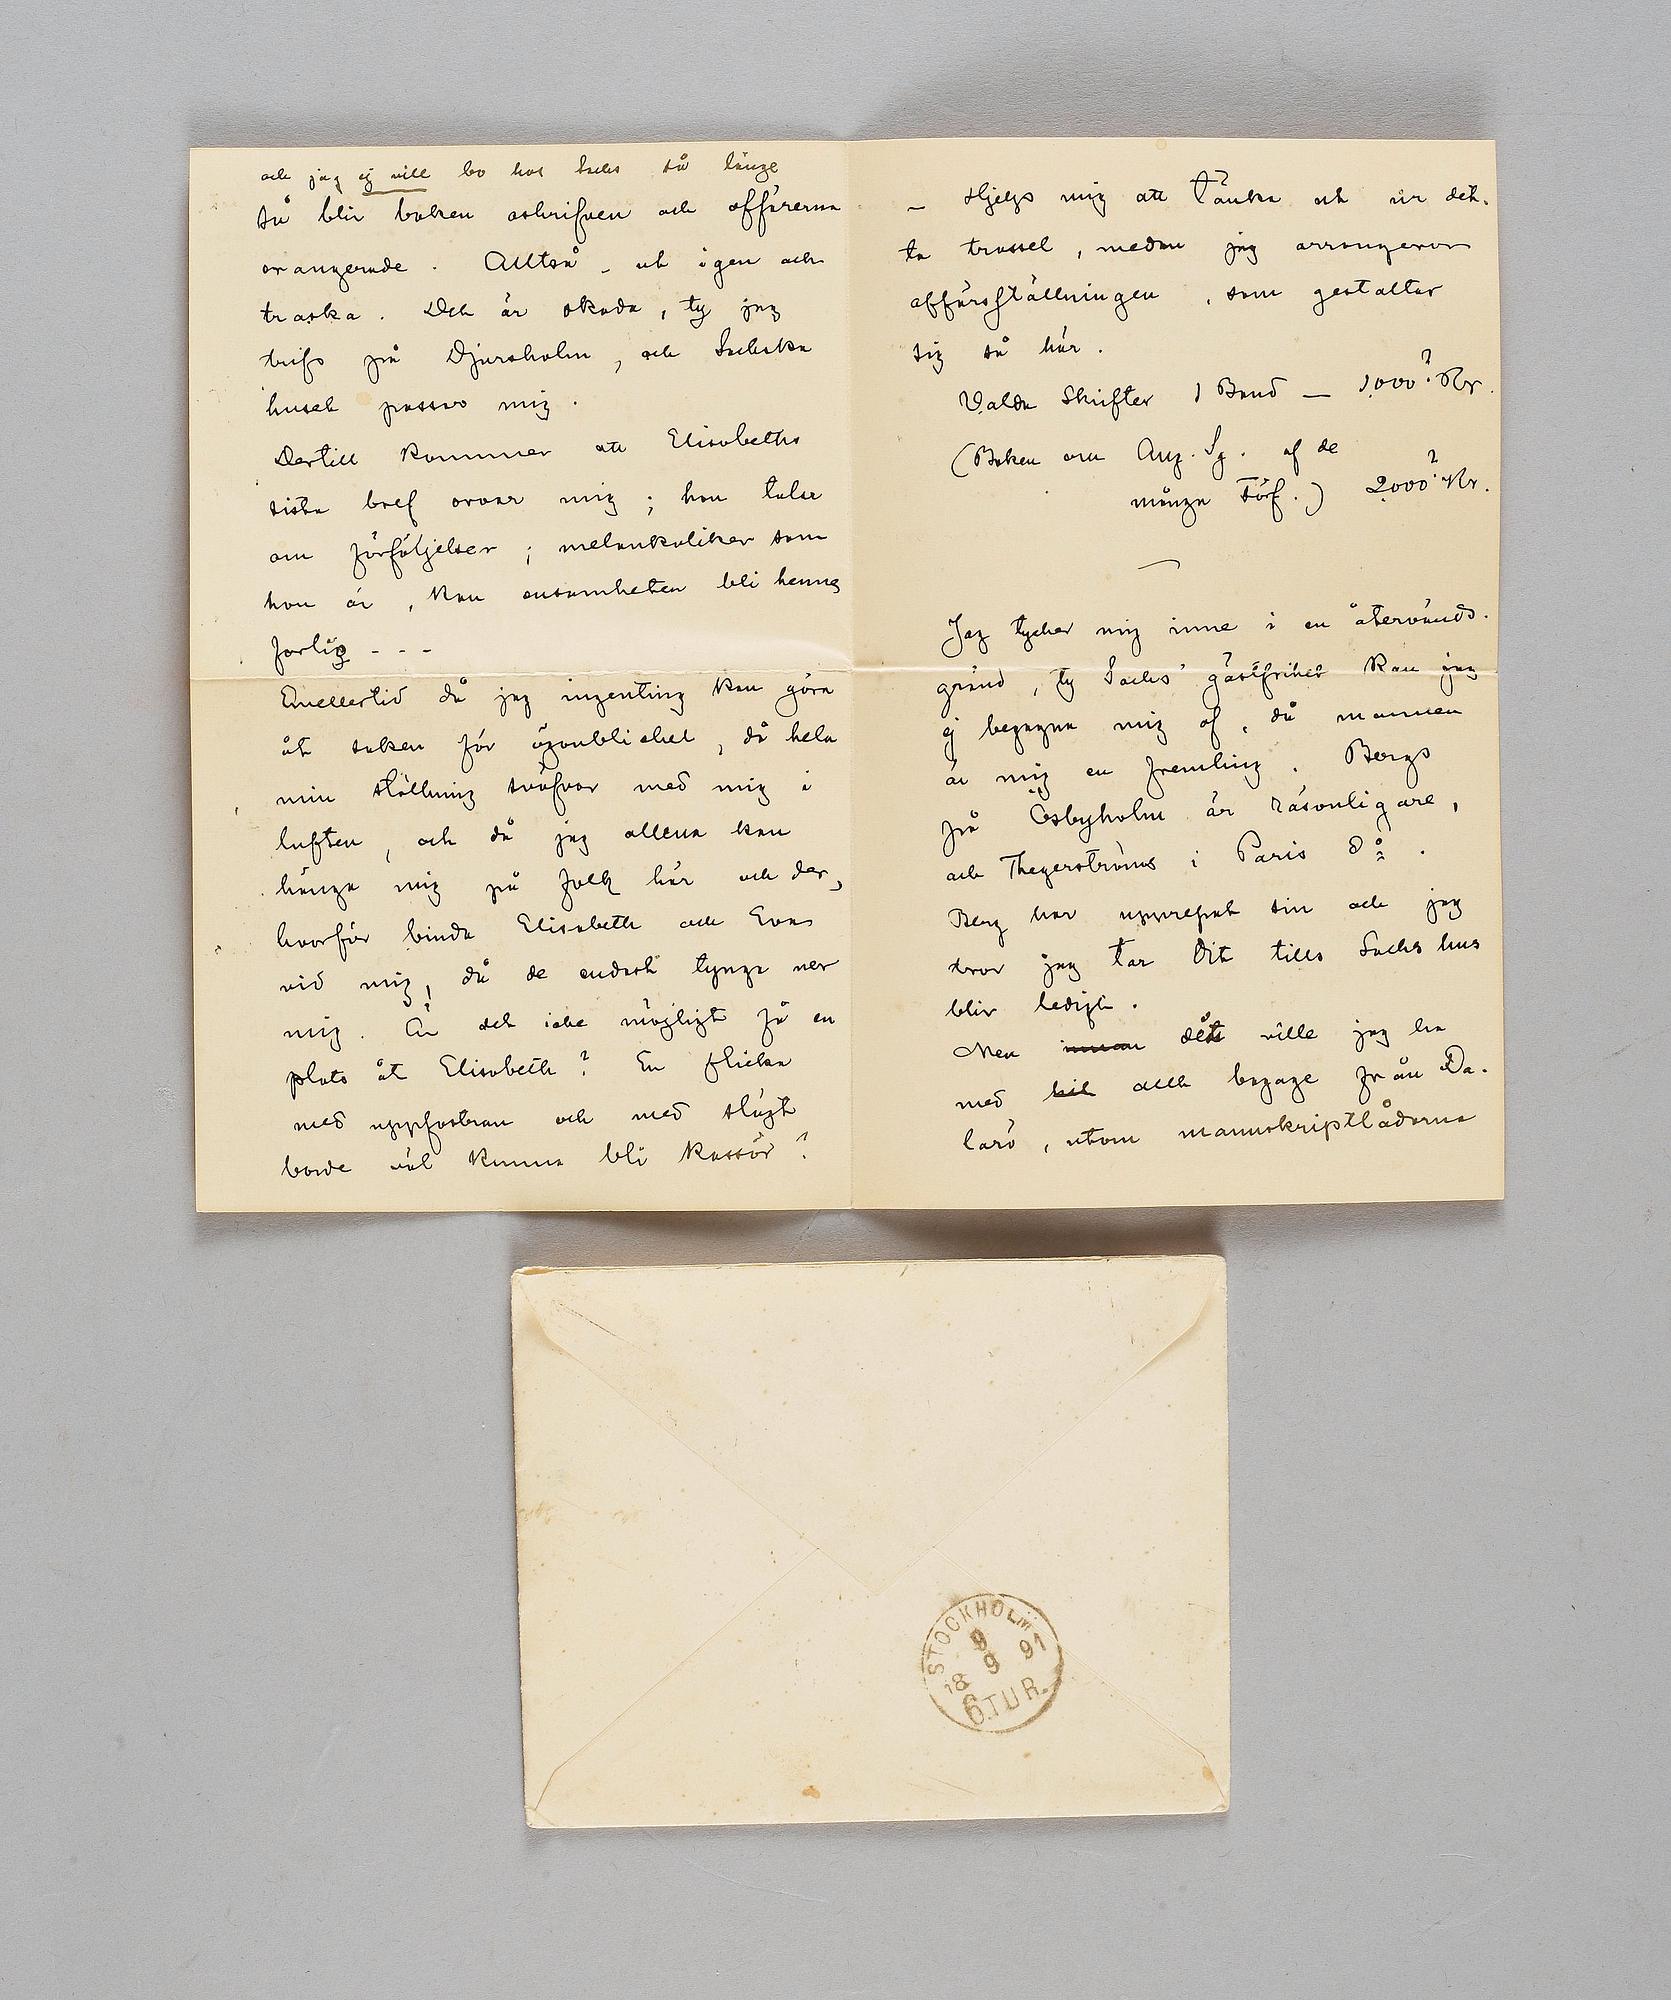 och jag ej vill bo hos Sachs så länge
så blir boken oskrifven och affärerna
orangerade. Alltså - ut igen och
traska. Det är skada, ty jag
trifs på Djursholm, och Sachska
huset passar mig.
Dertill kommer att Elisabeths
sista bref oroar mig; hon talar
om förföljelser; melankoliker som
hon är, kan ensamheten bli henne
farlig - - -
Emellertid då jag ingenting kan göra
åt saken för ögonblicket, då hela
min ställning sväfvar med mig i
luften, och då jag allena kan
hänga mig på folk här och der,
hvarför binda Elisabeth och Evas
vid mig, då de endast tynga ner
mig. Är det icke möjligt få en
plats åt Elisabeth? En flicka
med uppfostran och med slägt
borde väl kunna bli kassör?
– Hjelp mig att tänka ut ur det-
ta trassel, medan jag arrangerar
affärsställningen, som gestaltar
sig så här.
Valda Skrifter 1 Band — 1000? Kr.
(Boken om Aug. Sg. af de
många Förf.) 2000? Kr.
Jag tycker mig inne i en återvänds-
gränd, ty Sachs' gästfrihet kan jag
ej begagna mig af, då mannen
är mig en fremling. Bergs
på Ösbyholm är räsonligare,
och Thegerströms i Paris do.
Berg har upprepat sin och jag
tror jag tar dit tills Sachs hus
blir ledigt.
Men dåts ville jag ha
med allt bagage från Da-
larö, utom manuskriptlådorna
STOCKHOLM
9
18 9 91
6 TUR.